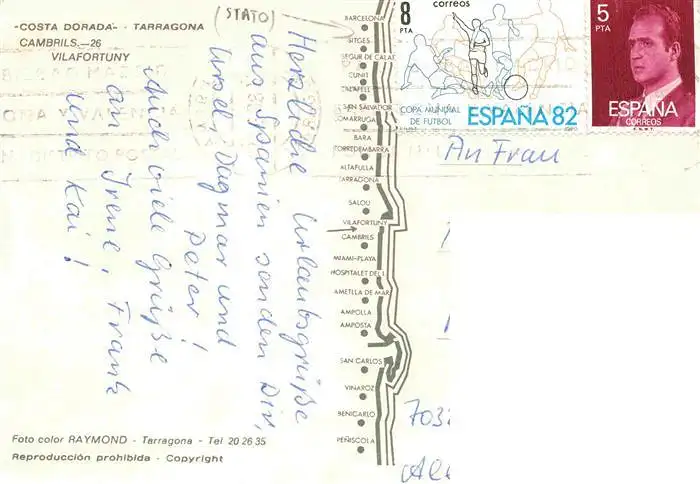 "COSTA DORADA" - TARRAGONA
CAMBRILS.—26
VILAFORTUNY
(STATO)
Herzliche Urlaubsgrüße
aus Spanien senden Dir,
Ursel Dagmar und
Peter!
Auch viele Grüße
an Irene, Frank
und Kai!
Foto color RAYMOND - Tarragona - Tel 20 26 35
Reproducción prohibida - Copyright
BARCELONA
SITGES
SEGUR DE CALAF.
CUNIT
CALAFELL
SAN SALVADOR
COMARRUGA
BARA
TORREDEMBARRA
ALTAFULLA
TARRAGONA
SALOU
VILAFORTUNY
CAMBRILS
MIAMI-PLAYA
HOSPITALET DEL I.
AMETLLA DE MAR
AMPOLLA
AMPOSTA
SAN CARLOS
VINAROZ
BENICARLO
PEÑISCOLA
8
PTA
correos
COPA MUNDIAL
DE FUTBOL
ESPAÑA 82
5
PTA
ESPAÑA
CORREOS
F.N.M.T.
An Frau
703